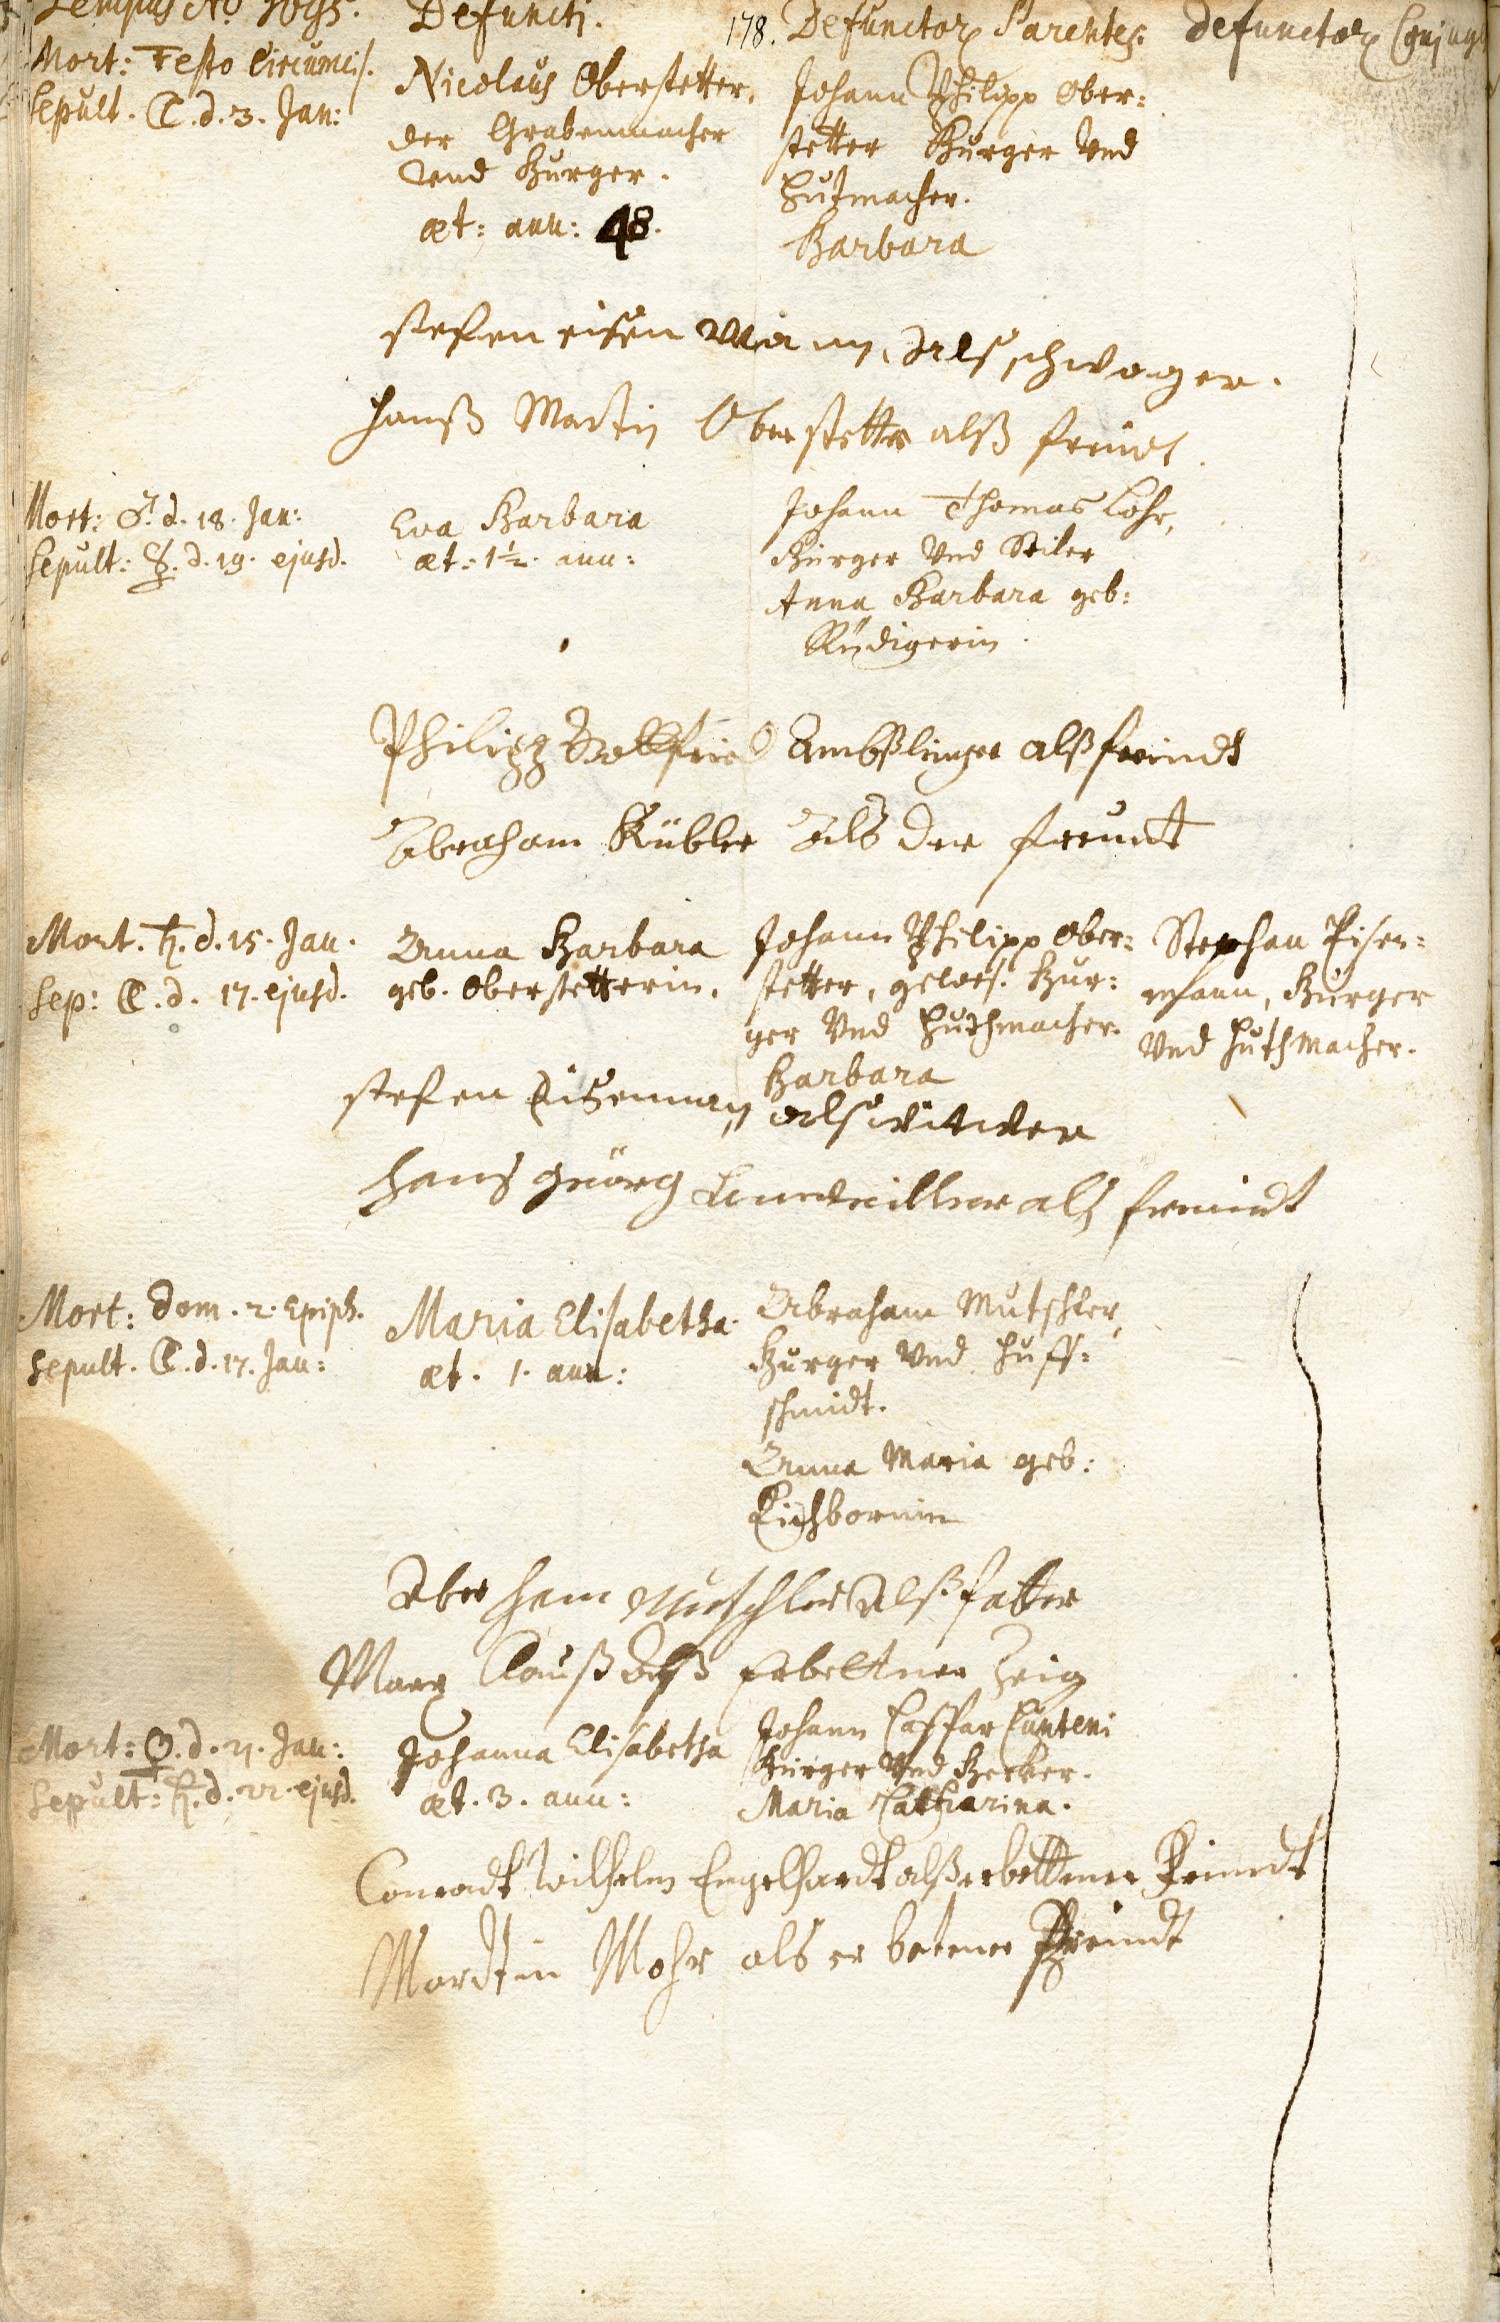 Tempus Ao 1695.
Defuncti.
178. Defunctor Parentes.
Defunctor Conjug
Mort: Festo Circumcis.
Sepult. ☾. d. 3. Jan:
Nicolaus Oberstetter,
der Grabenmacher
Vnd Burger.
æt: ann: 48.
Johann Philipp Ober:
stetter Burger Vnd
Hutmacher.
Barbara
stefen eisen Mann, Als schwager.
Hanß Martin Oberstetter alß freindt.
Mort: ♂. d. 18. Jan:
Sepult: ☿. d. 19. ejusd.
Eva Barbara
æt: 1½. ann:
Johann Thomas Lohr,
Burger Vnd Seiler
Anna Barbara geb:
Rüdigerin.
Philipp Gottfried Ambßlinger alß freindt
Abraham Kübler Als der freundt
Mort. ♄. d. 15. Jan.
Sep: ☾. d. 17. ejusd.
Anna Barbara
geb. Oberstetterin.
Johann Philipp Ober:
stetter, gewes. Bur:
ger Vnd Huthmacher.
Barbara
Stephan Eisen:
mann, Burger
Vnd Huthmacher.
stefen Eisenman als witwer
Hans Geörg als freundt
Mort: Dom. 2. Epiph.
Sepult. ☾. d. 17. Jan:
Maria Elisabetha.
æt. 1. ann:
Abraham Mutschler,
Burger Vnd Huff:
schmidt.
Anna Maria geb:
Eichbornin
Aberham Mutschler Alß fatter
Marx Clauß Alß Erbettner Zeig
Mort: ♀. d. 21. Jan:
Sepult: ♄. d. 22. ejusd.
Johanna Elisabetha
æt. 3. ann:
Johann Caspar Cunteni
Burger Vnd Becker.
Maria Catharina.
Conradt Wilhelm Engelhardt alß erbettener Freindt
Mardtin Mohr als er betener Freindt